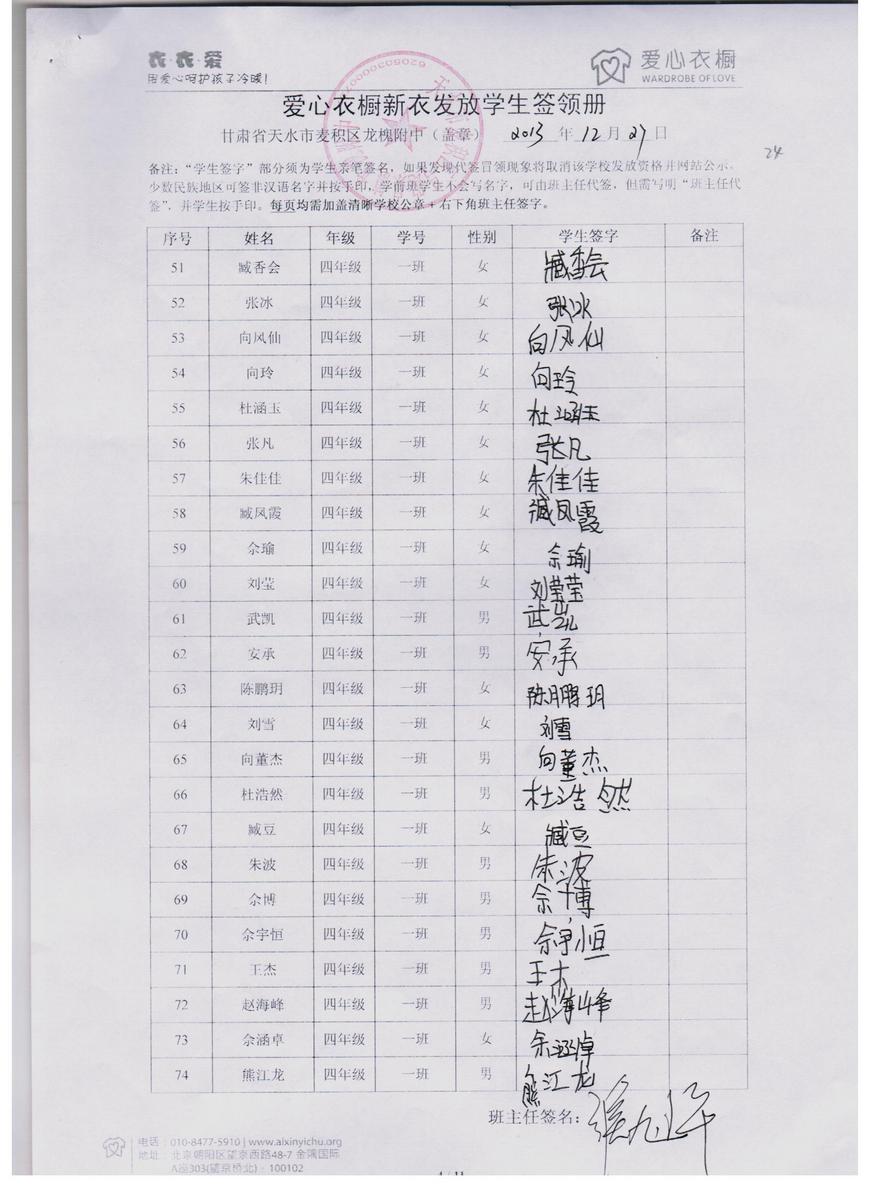 衣·衣·爱
用爱心呵护孩子冷暖!
爱心衣橱
WARDROBE OF LOVE
爱心衣橱新衣发放学生签领册
甘肃省天水市麦积区龙槐附中（盖章） 2013 年 12 月 27 日
24
备注：“学生签字”部分须为学生亲笔签名，如果发现代签冒领现象将取消该学校发放资格并网站公示。
少数民族地区可签非汉语名字并按手印，学前班学生不会写名字，可由班主任代签，但需写明“班主任代
签”，并学生按手印。每页均需加盖清晰学校公章+右下角班主任签字。
序号 姓名 年级 学号 性别 学生签字 备注
51 臧香会 四年级 一班 女 臧香会
52 张冰 四年级 一班 女 张冰
53 向风仙 四年级 一班 女 向风仙
54 向玲 四年级 一班 女 向玲
55 杜涵玉 四年级 一班 女 杜涵玉
56 张凡 四年级 一班 女 张凡
57 朱佳佳 四年级 一班 女 朱佳佳
58 臧凤霞 四年级 一班 女 臧凤霞
59 佘瑜 四年级 一班 女 佘瑜
60 刘莹 四年级 一班 女 刘莹莹
61 武凯 四年级 一班 男 武凯
62 安承 四年级 一班 男 安承
63 陈鹏玥 四年级 一班 女 陈鹏玥
64 刘雪 四年级 一班 女 刘雪
65 向董杰 四年级 一班 男 向董杰
66 杜浩然 四年级 一班 男 杜浩然
67 臧豆 四年级 一班 女 臧豆
68 朱波 四年级 一班 男 朱波
69 佘博 四年级 一班 男 佘博
70 佘宇恒 四年级 一班 男 佘宇恒
71 王杰 四年级 一班 男 王杰
72 赵海峰 四年级 一班 男 赵海峰
73 佘涵卓 四年级 一班 女 佘涵卓
74 熊江龙 四年级 一班 男 熊江龙
班主任签名：
电话：010-8477-5910 | www.aixinyichu.org
地址：北京朝阳区望京西路48-7 金隅国际
A座303(望京桥北)·100102
4 / 11